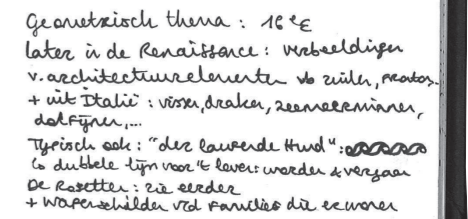 Geometrisch thema : 16ᵉE
later in de Renaissance : verbeeldingen
v. architectuurelementen vb zuilen,
+ uit Italië : vissen, draken, zeemeerminnen,
dolfijnen,...
Typisch ook : "der laufende Hund" :
↳ dubbele lijn voor 't leven: worden & vergaan
De Rosetten : zie eerder
+ wapenschilden vd families die er wonen